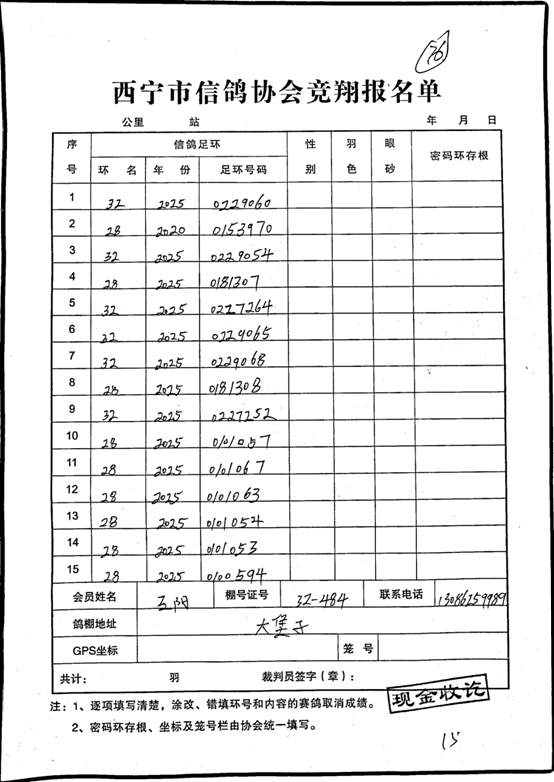 76
西宁市信鸽协会竞翔报名单
公里 站 年 月 日
序号 信鸽足环 性别 羽色 眼砂 密码环存根
环名 年份 足环号码
1 32 2025 0229060
2 28 2020 0153970
3 32 2025 0229054
4 28 2025 0181307
5 32 2025 0227264
6 32 2025 0229065
7 32 2025 0229068
8 28 2025 0181308
9 32 2025 0227252
10 28 2025 0101057
11 28 2025 0101067
12 28 2025 0101063
13 28 2025 0101054
14 28 2025 0101053
15 28 2025 0100594
会员姓名 王阳 棚号证号 32-484 联系电话
鸽棚地址 大堡子
GPS坐标 笼号
共计： 羽 裁判员签字（章）：
注：1、逐项填写清楚，涂改、错填环号和内容的赛鸽取消成绩。
现金收讫
2、密码环存根、坐标及笼号栏由协会统一填写。
15